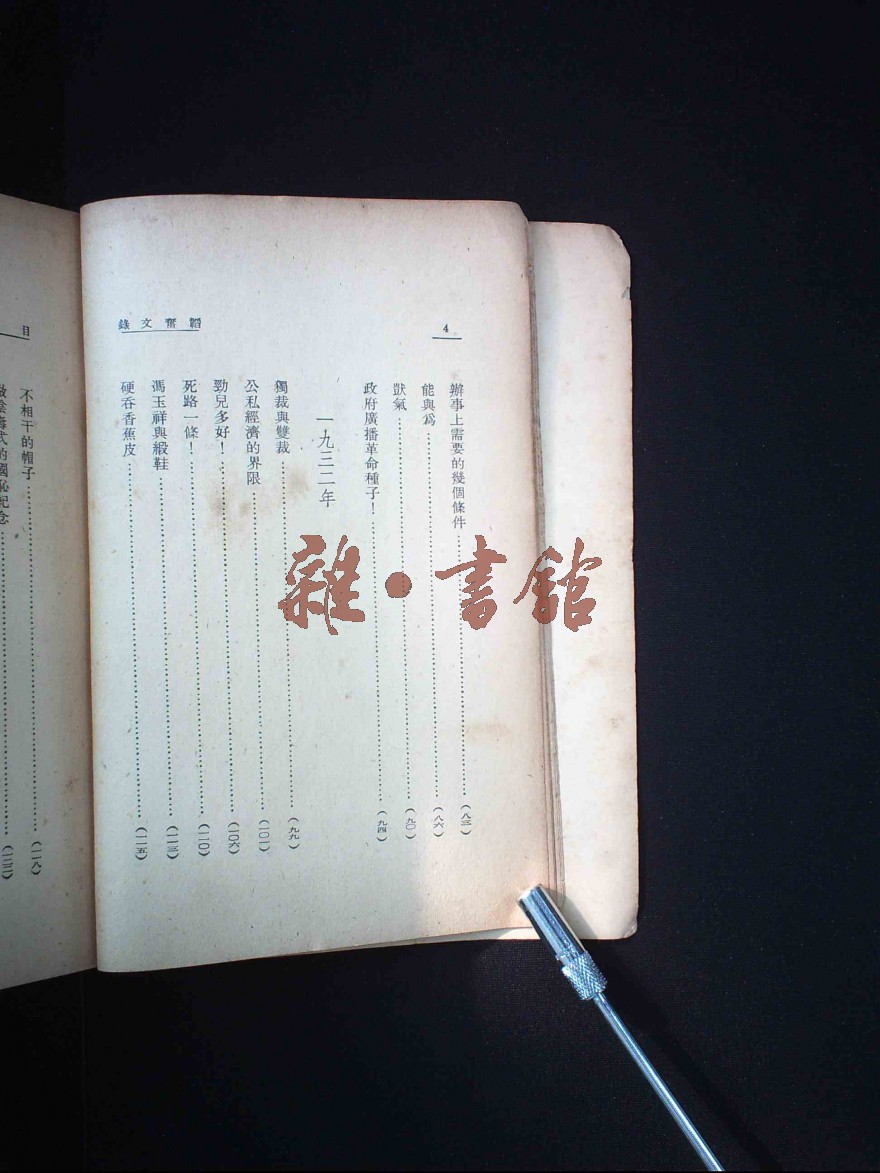 4
韜奮文錄
辦事上需要的幾個條件(八三)
能與爲(八六)
獸氣(九〇)
政府廣播革命種子!(九四)
一九三二年
獨裁與雙裁(九九)
公私經濟的界限(一〇一)
勁兒多好!(一〇六)
死路一條!(一一〇)
馮玉祥與緞鞋(一一三)
硬吞香蕉皮(一一五)
目
不相干的帽子(一一八)
式的國恥紀念
雜·書館